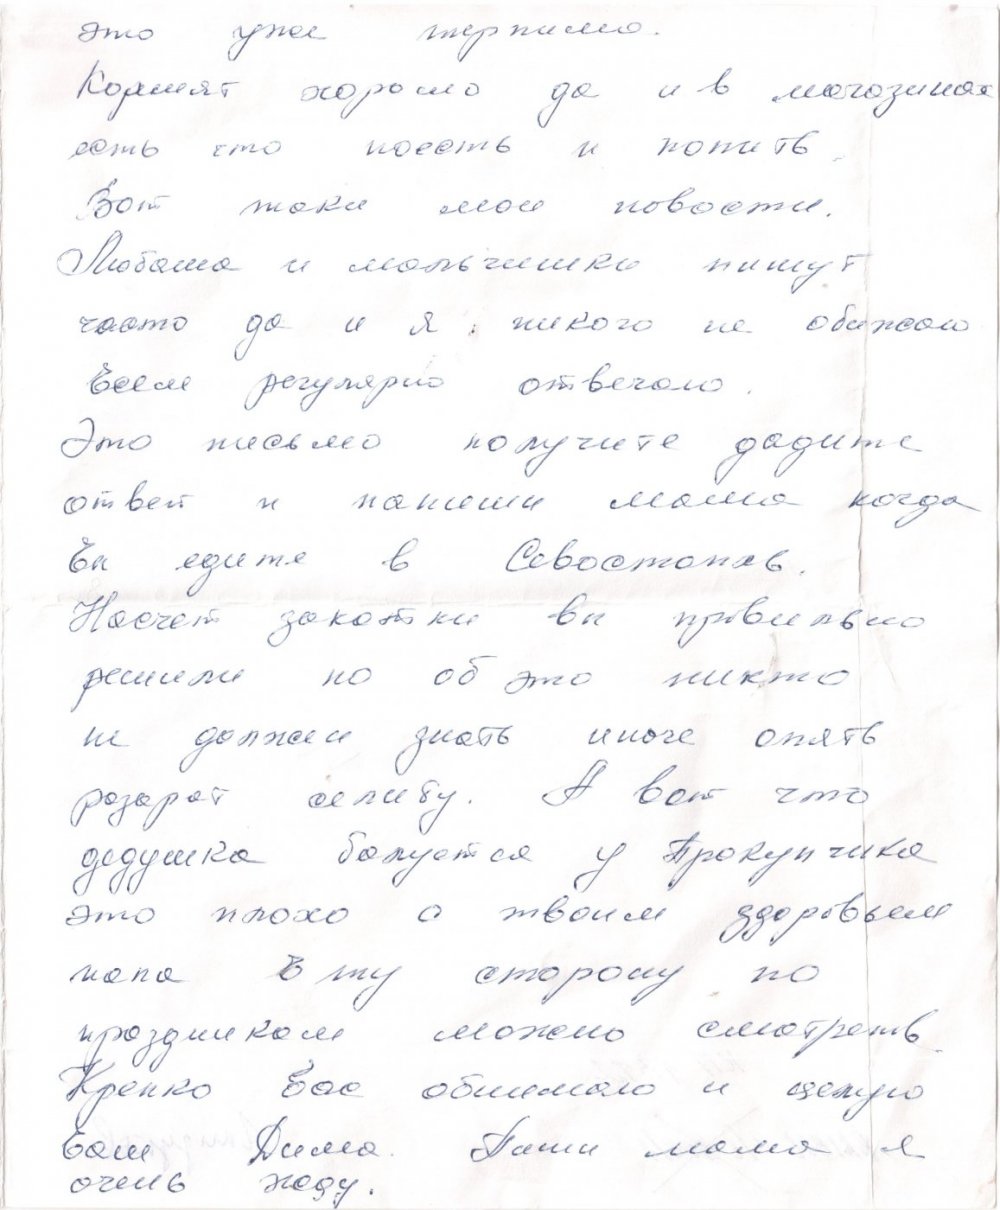 это уже терпимо.
Кормят хорошо да и в магазинах
есть что поесть и попить.
Вот таки мои новости.
Любаша и мальчишки пишут
часто да и я никого не обижаю
Всем регулярно отвечаю.
Это письмо получите дадите
ответ и напиши мама когда
Вы едите в Севостопль.
Насчет закатки вы правильно
решили но об это никто
не должен знать иначе опять
дедушка балуется у Прокупчика
это плохо с твоим здоровьем
папа В ту сторону по
праздникам можно смотреть.
Крепко Вас обнимаю и целую
Ваш Дима. Пиши мама я
очень жду.